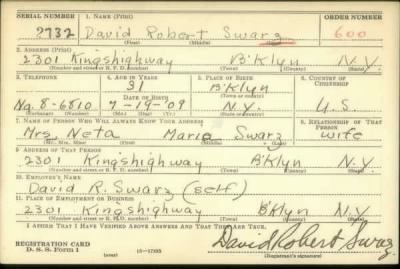 SERIAL NUMBER 1. NAME (Print) ORDER NUMBER
2732 David Robert Swarz 600
(First) (Middle) (Last)
2. ADDRESS (Print)
2301 Kingshighway B'Klyn N.Y.
(Number and street or R. F. D. number) (Town) (County) (State)
3. TELEPHONE 4. AGE IN YEARS 5. PLACE OF BIRTH 6. COUNTRY OF CITIZENSHIP
31 B'Klyn
DATE OF BIRTH (Town or county)
Na. 8-6810 7-19-09 N.Y. U.S.
(Exchange) (Number) (Mo.) (Day) (Yr.) (State or country)
7. NAME OF PERSON WHO WILL ALWAYS KNOW YOUR ADDRESS 8. RELATIONSHIP OF THAT PERSON
Mrs. Neta Marie Swarz wife
(Mr., Mrs., Miss) (First) (Middle) (Last)
9. ADDRESS OF THAT PERSON
2301 Kingshighway B'Klyn N.Y.
(Number and street or R. F. D. number) (Town) (County) (State)
10. EMPLOYER'S NAME
David R. Swarz (self)
11. PLACE OF EMPLOYMENT OR BUSINESS
2301 Kingshighway B'Klyn N.Y.
(Number and street or R. F. D. number) (Town) (County) (State)
I AFFIRM THAT I HAVE VERIFIED ABOVE ANSWERS AND THAT THEY ARE TRUE.
REGISTRATION CARD David Robert Swarz
D. S. S. Form 1 (over) (Registrant's signature)